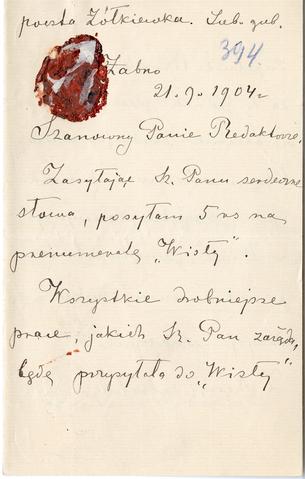 poczta Żółkiewka. Lub. gub.
394.
Żabno
21.9. 1904 r
Szanowny Panie Redaktorze,
Zasyłając Sz. Panu serdeczne
słowa, posyłam 5 rs na
prenumeratę „Wisły".
Wszystkie drobniejsze
prace, jakich Sz. Pan zażąda,
będę przysyłała do „Wisły"